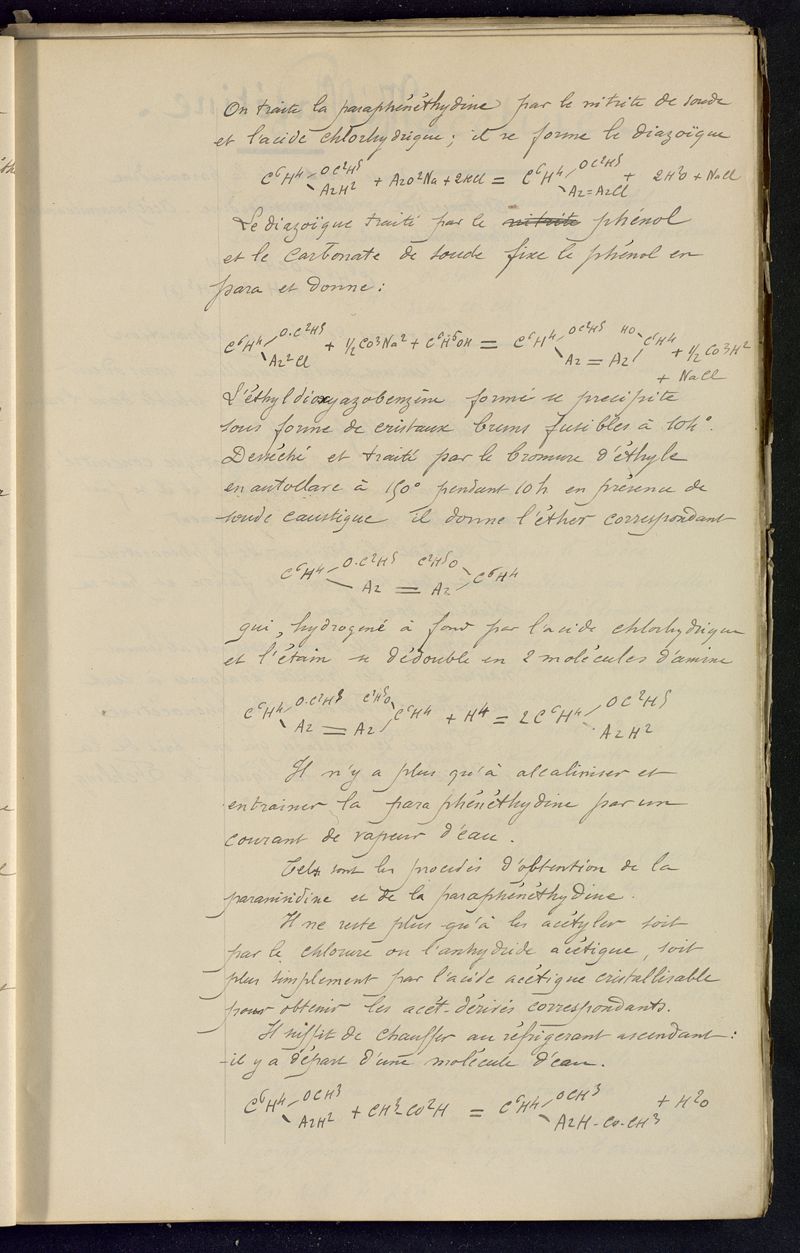 On traite la paraphénéthydine par le nitrite de soude
et l'acide chlorhydrique ; il se forme le diazoïque
C⁶H⁴ OC²H⁵ AzH² + AzO²Na + 2HCl = C⁶H⁴ OC²H⁵ Az=AzCl + 2H²O + NaCl
Le diazoïque traité par le nitrite phénol
et le carbonate de soude fixe le phénol en
para et donne :
C⁶H⁴ O.C²H⁵ Az²Cl + ½CO³Na² + C⁶H⁵OH = C⁶H⁴ OC²H⁵ Az = Az HO C⁶H⁴ + ½CO³H²
+ NaCl
L'éthyldioxyazobenzène formé se précipite
sous forme de cristaux bruns fusibles à 104°.
Desséché et traité par le bromure d'éthyle
en autoclave à 150° pendant 10h en présence de
soude caustique il donne l'éther correspondant
C⁶H⁴ O.C²H⁵ Az = Az C²H⁵O C⁶H⁴
qui, hydrogené à fond par l'acide chlorhydrique
et l'étain se dédouble en 2 molécules d'amine
C⁶H⁴ O.C²H⁵ Az = Az C²H⁵O C⁶H⁴ + H⁴ = 2C⁶H⁴ OC²H⁵ AzH²
Il n'y a plus qu'à alcaliniser et
entrainer la paraphénéthydine par un
courant de vapeur d'eau.
Tels sont les procédés d'obtention de la
paranisidine et de la paraphénéthydine.
Il ne reste plus qu'à les acétyler soit
par le chlorure ou l'anhydride acétique, soit
plus simplement par l'acide acétique cristallisable
pour obtenir les acét-dérivés correspondants.
Il suffit de chauffer au réfrigerant ascendant :
il y a départ d'une molécule d'eau.
C⁶H⁴ OCH³ AzH² + CH³-CO²H = C⁶H⁴ OCH³ AzH-CO-CH³ + H²O